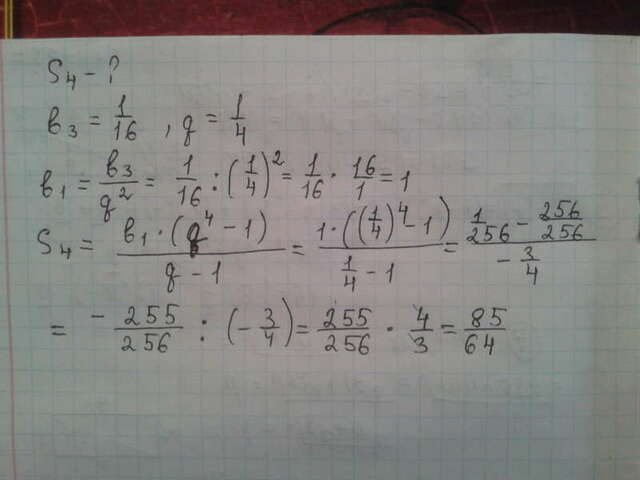 S₄ - ?
b₃ = 1/16 , q = 1/4
b₁ = b₃/q² = 1/16 : (1/4)² = 1/16 · 16/1 = 1
S₄ = b₁·(q⁴ - 1)/(q - 1) = 1·((1/4)⁴ - 1)/(1/4 - 1) = (1/256 - 256/256)/(- 3/4)
= - 255/256 : (- 3/4) = 255/256 · 4/3 = 85/64